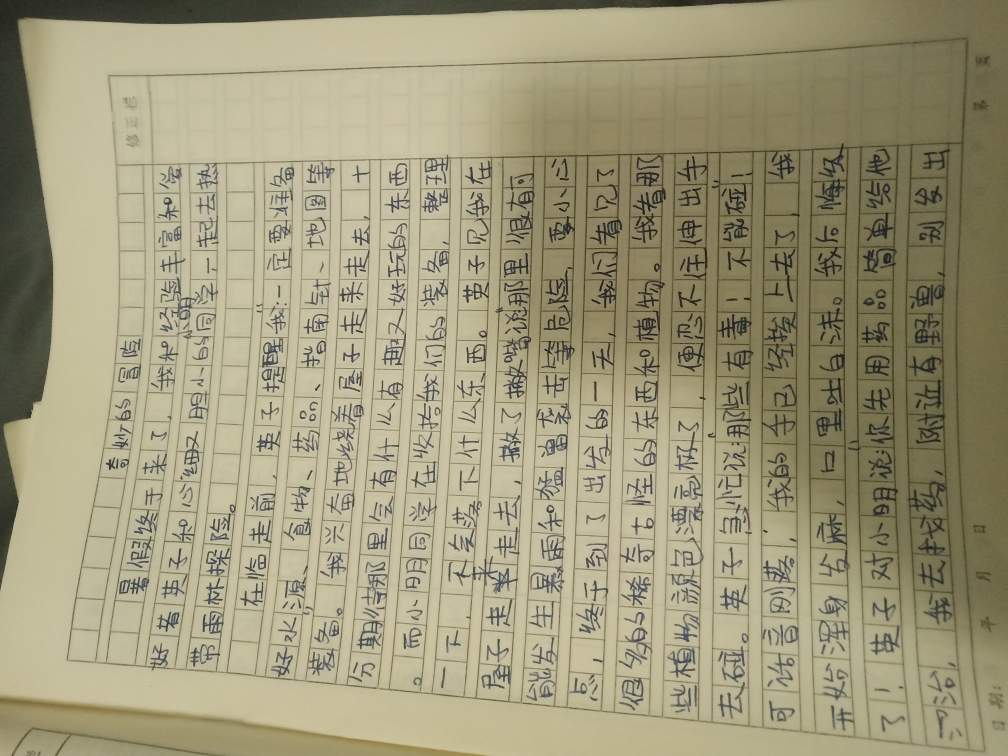 修正栏
奇妙的冒险
暑假终于来了，我和经验丰富知觉
好者英子和心细又胆小的小明同学一起去热
带雨林探险。
在临走前，英子提醒我：一定要准备
好水源、食物、药品、指南针、地图等
装备。我兴奋地绕着屋子走来走去，十
分期待那里会有什么有趣又好玩的东西
。而小明同学在收拾我们的装备，整理
一下，不会落下什么东西。英子见我在
屋子走来走去，撇了撇嘴说那里很有可
能发生暴雨和猛兽袭击等危险，要小心
点，终于到了出发的一天，我们看见了
很多的稀奇古怪的东西和植物。我看那
些植物颜色漂亮极了，便忍不住伸出手
去碰。英子急忙说：那些有毒！不能碰！
可话音刚落，我的手已经挨上去了，我
开始浑身发麻，口里吐白沫。我后悔极
了！英子对小明说：你先用药品简单给他
治治，我去找药，附近有野兽，别发出
日期： 年 月 日
第 页